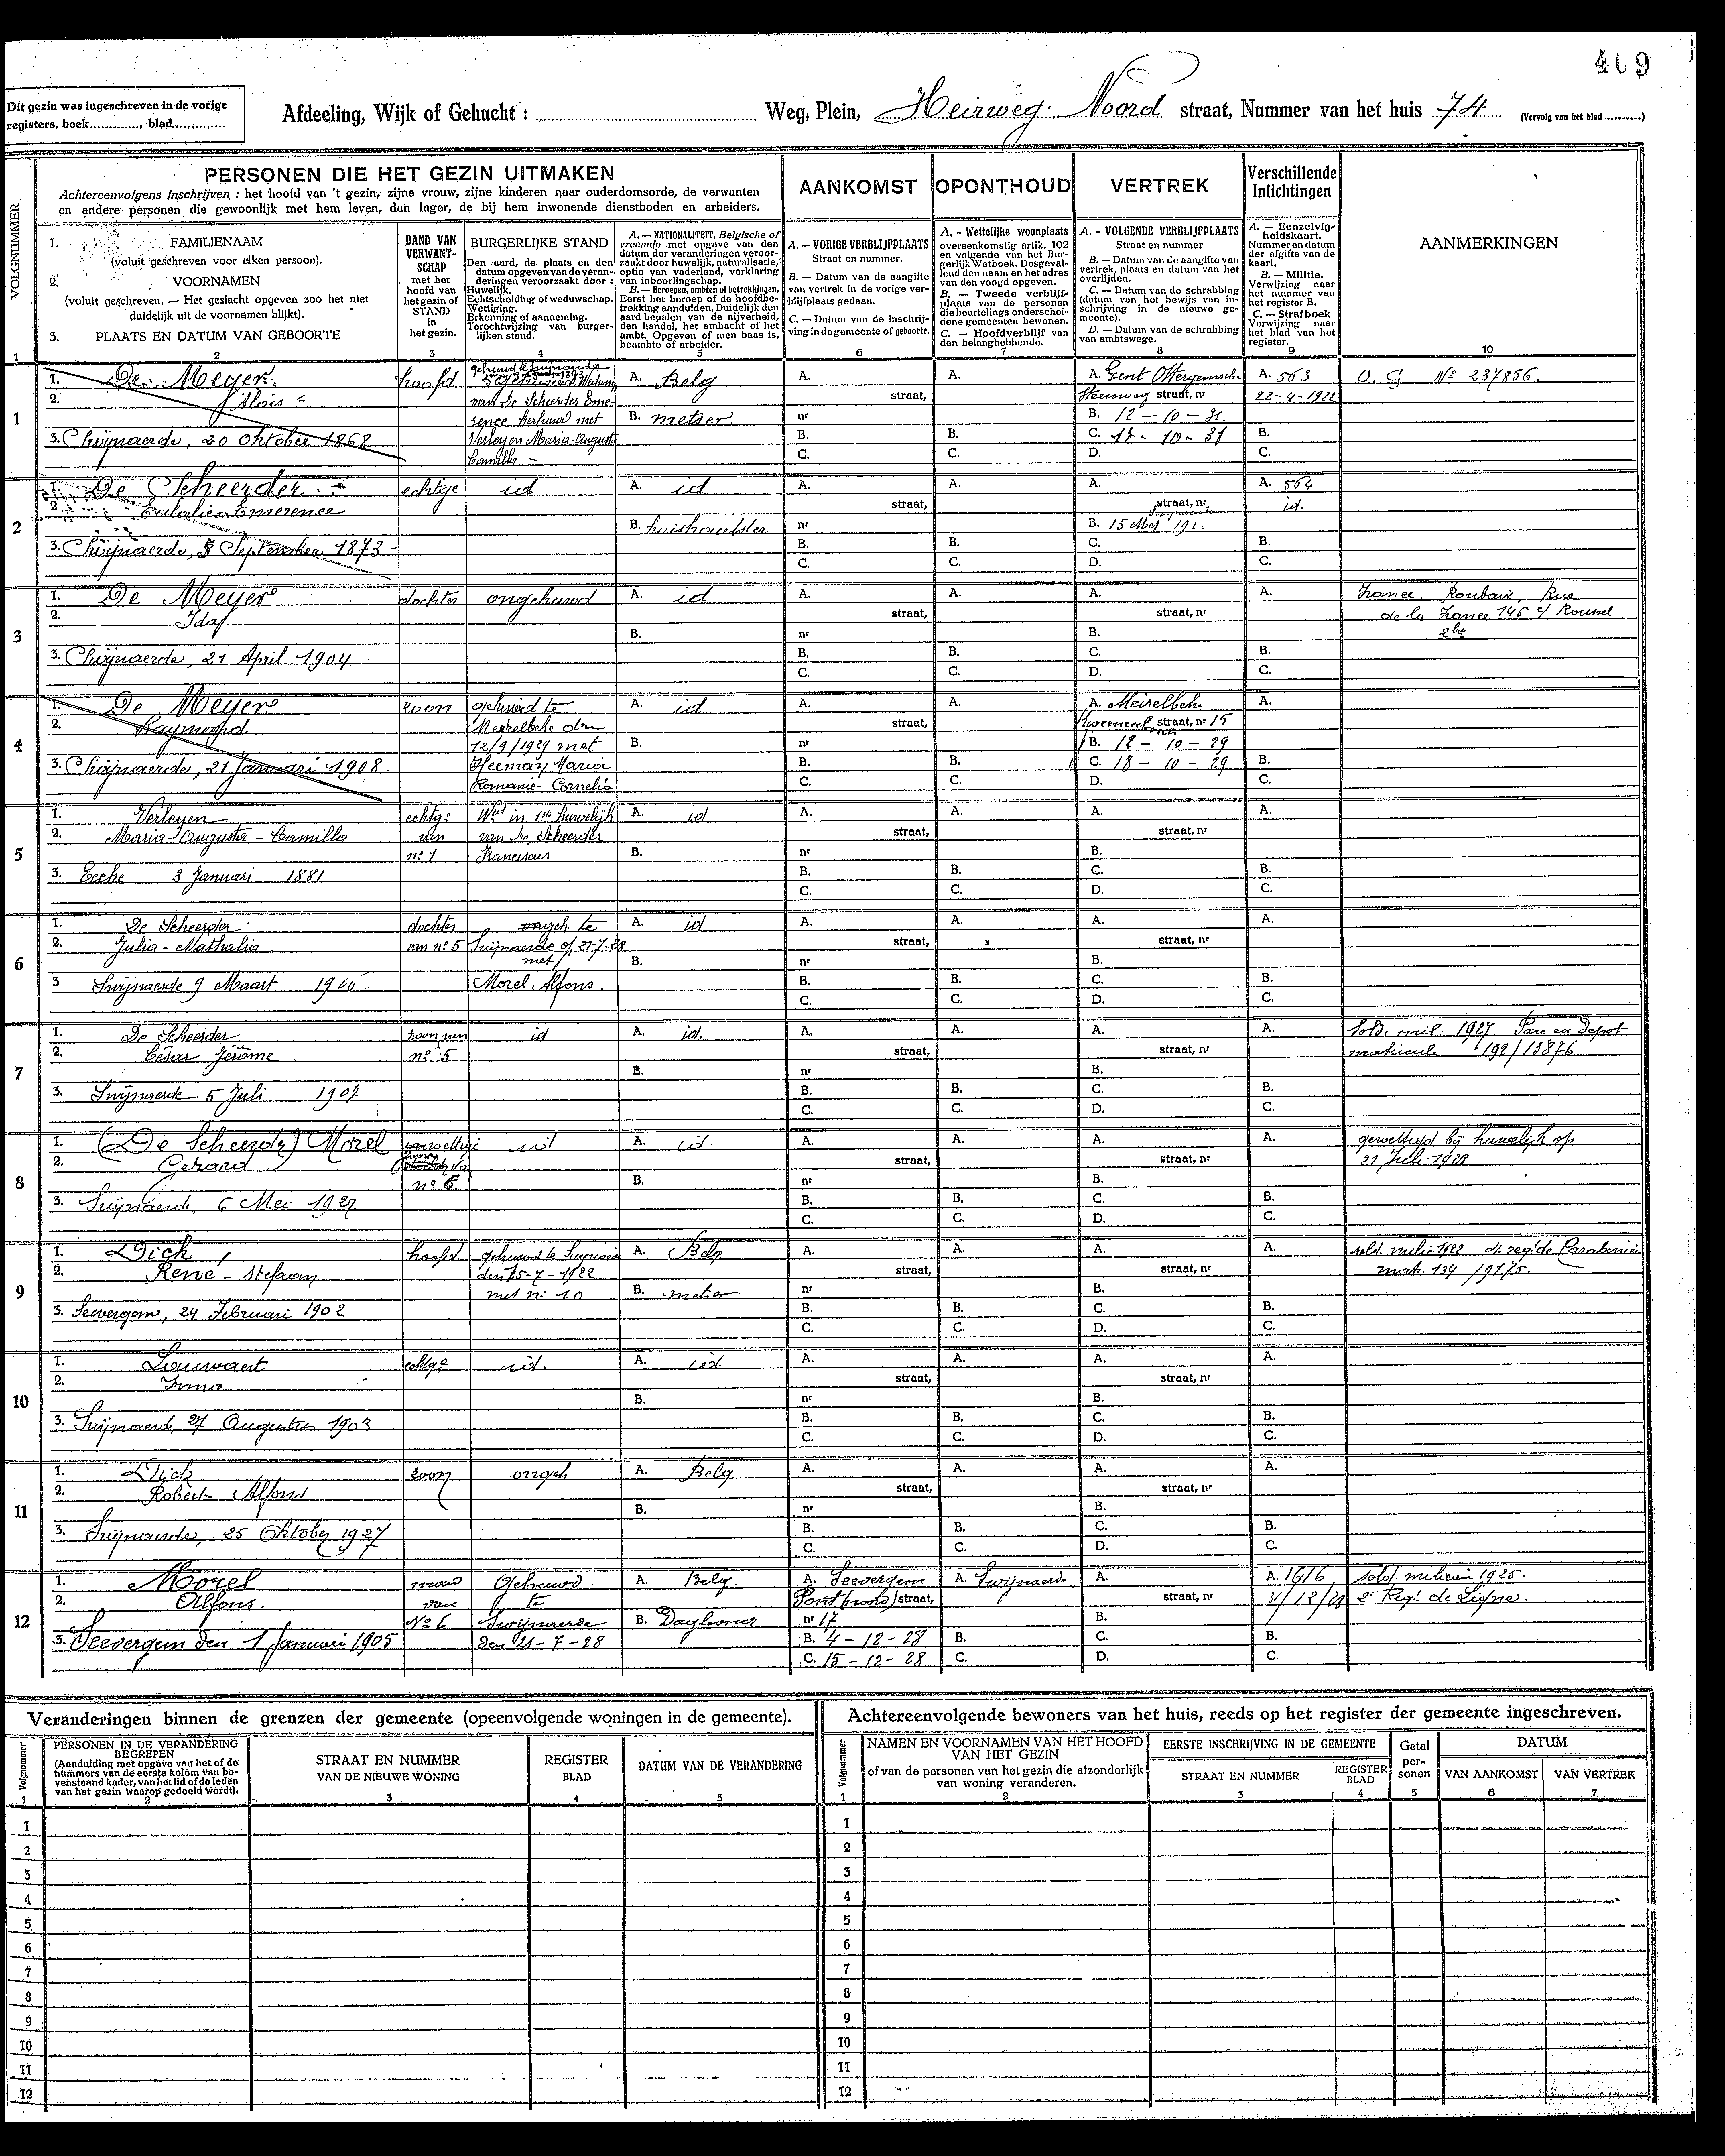 409
Dit gezin was ingeschreven in de vorige
registers, boek............, blad.............
Afdeeling, Wijk of Gehucht : ............ Weg, Plein, Heirweg. Noord straat, Nummer van het huis 74 (Vervolg van het blad ..........)
VOLGNUMMER
PERSONEN DIE HET GEZIN UITMAKEN
Achtereenvolgens inschrijven : het hoofd van 't gezin, zijne vrouw, zijne kinderen naar ouderdomsorde, de verwanten
en andere personen die gewoonlijk met hem leven, dan lager, de bij hem inwonende dienstboden en arbeiders.
AANKOMST
OPONTHOUD
VERTREK
Verschillende
Inlichtingen
1. FAMILIENAAM
(voluit geschreven voor elken persoon).
2. VOORNAMEN
(voluit geschreven. — Het geslacht opgeven zoo het niet
duidelijk uit de voornamen blijkt).
3. PLAATS EN DATUM VAN GEBOORTE
BAND VAN
VERWANT-
SCHAP
met het
hoofd van
het gezin of
STAND
in
het gezin.
BURGERLIJKE STAND
Den aard, de plaats en den
datum opgeven van de veran-
deringen veroorzaakt door :
Huwelijk.
Echtscheiding of weduwschap.
Wettiging.
Erkenning of aanneming.
Terechtwijzing van burger-
lijken stand.
A. — NATIONALITEIT. Belgische of
vreemde met opgave van den
datum der veranderingen veroor-
zaakt door huwelijk, naturalisatie,
optie van vaderland, verklaring
van inboorlingschap.
B. — Beroepen, ambten of betrekkingen.
Eerst het beroep of de hoofdbe-
trekking aanduiden. Duidelijk den
aard bepalen van de nijverheid,
den handel, het ambacht of het
ambt. Opgeven of men baas is,
beambte of arbeider.
A. — VORIGE VERBLIJFPLAATS
Straat en nummer.
B. — Datum van de aangifte
van vertrek in de vorige ver-
blijfplaats gedaan.
C. — Datum van de inschrij-
ving in de gemeente of geboorte.
A. - Wettelijke woonplaats
overeenkomstig artik. 102
en volgende van het Bur-
gerlijk Wetboek. Desgeval-
lend den naam en het adres
van den voogd opgeven.
B. — Tweede verblijf-
plaats van de personen
die beurtelings onderschei-
dene gemeenten bewonen.
C. — Hoofdverblijf van
den belanghebbende.
A. - VOLGENDE VERBLIJFPLAATS
Straat en nummer
B. — Datum van de aangifte van
vertrek, plaats en datum van het
overlijden.
C. — Datum van de schrabbing
(datum van het bewijs van in-
schrijving in de nieuwe ge-
meente).
D. — Datum van de schrabbing
van ambtswege.
A. — Eenzelvig-
heidskaart.
Nummer en datum
der afgifte van de
kaart.
B. — Militie.
Verwijzing naar
het nummer van
het register B.
C. — Strafboek
Verwijzing naar
het blad van het
register.
AANMERKINGEN
1 2 3 4 5 6 7 8 9 10
1
1. De Meyer hoofd
2. Aloïs
3. Chwijnaerde, 20 oktober 1868
van De Scheerder Eme-
rence herhuwd met
Verleyen Maria-August
Camilla -
A. Belg
B. metser
A.
straat,
nr
B.
C.
A.
B.
C.
A. Gent Ottergemsch.
Steenweg straat, nr
B. 12 - 10 - 31.
C. 17 - 10 - 31
D.
A. 563
22-4-1922
B.
C.
O. G. No 237856.
2
1. De Scheerder echtge id A. id
2. Eulalie-Emerence
B. huishoudster
3. Chwijnaerde, 8 September 1873 -
A.
straat,
nr
B.
C.
A.
B.
C.
A.
straat, nr
B. 15 Mei 192
C.
D.
A. 564
id.
B.
C.
3
1. De Meyer dochter ongehuwd A. id
2. Ida
B.
3. Chwijnaerde, 21 April 1904.
A.
straat,
nr
B.
C.
A.
B.
C.
A.
straat, nr
B.
C.
D.
A.
B.
C.
France, Roubaix, Rue
de la France 146 c/ Roussel
4
1. De Meyer zoon
2. Raymond
3. Chwijnaerde, 21 Januari 1908.
gehuwd te
Meirelbeke den
12/9/1929 met
Heeman Maria
Romanie- Cornelia
A. id
B.
A.
straat,
nr
B.
C.
A.
B.
C.
A. Meirelbeke
straat, nr 15
B. 12 - 10 - 29
C. 18 - 10 - 29
D.
A.
B.
C.
5
1. Verleyen
2. Maria-Augusta-Camilla
3. Eecke 3 Januari 1881
echtge
van
no 1
Wed in 1ste huwelijk
van De Scheerder
Franciscus
A. id
B.
A.
straat,
nr
B.
C.
A.
B.
C.
A.
straat, nr
B.
C.
D.
A.
B.
C.
6
1. De Scheerder
2. Julia-Nathalia
3 Swijnaerde 9 Maart
dochter
van no 5
geh. te
Swijnaerde o/ 21-7-28
met
Morel Alfons.
A. id
B.
A.
straat,
nr
B.
C.
A.
B.
C.
A.
straat, nr
B.
C.
D.
A.
B.
C.
7
1. De Scheerder
2. César Jérôme
3. Swijnaerde 5 Juli 1907
zoon van
no 5
id
A. id.
B.
A.
straat,
nr
B.
C.
A.
B.
C.
A.
straat, nr
B.
C.
D.
A.
B.
C.
Sold. mil. 1927. Parc en Depot
matricule 192/13876
8
1. (De Scheerder) Morel
2. Gerard
3. Swijnaerde, 6 Mei 1927
zoon
van
no 6
id
A. id.
B.
A.
straat,
nr
B.
C.
A.
B.
C.
A.
straat, nr
B.
C.
D.
A.
B.
C.
gewettigd bij huwelijk op
21 Juli 1928
9
1. Dick,
2. René-Stefaan
3. Seevergem, 24 Februari 1902
hoofd
gehuwd te Swijnaerde
den 15-7-1922
met no 10
A. Belg
B. metser
A.
straat,
nr
B.
C.
A.
B.
C.
A.
straat, nr
B.
C.
D.
A.
B.
C.
sold. milic 1922
matr. 134/9175.
10
1. Louwaert
2. Irma
3. Swijnaerde, 27 Augustus 1903
echtge
id.
A. id.
B.
A.
straat,
nr
B.
C.
A.
B.
C.
A.
straat, nr
B.
C.
D.
A.
B.
C.
11
1. Dick
2. Robert Alfons
3. Swijnaerde, 25 Oktober 1927
zoon
ongeh
A. Belg
B.
A.
straat,
nr
B.
C.
A.
B.
C.
A.
straat, nr
B.
C.
D.
A.
B.
C.
12
1. Morel
2. Alfons.
3. Seevergem den 1 Januari 1905
man
van
No 6
Gehuwd.
te
Swijnaerde
den 21-7-28
A. Belg.
B. Daglooner
A. Seevergem
straat,
nr 17
B. 4-12-28
C. 15-12-28
A. Swijnaerde
B.
C.
A.
straat, nr
B.
C.
D.
A. 1616
31/12/28
B.
C.
sold. milicien 1925.
2e Regt de Ligne.
Veranderingen binnen de grenzen der gemeente (opeenvolgende woningen in de gemeente).
Volgnummer
PERSONEN IN DE VERANDERING
BEGREPEN
(Aanduiding met opgave van het of de
nummers van de eerste kolom van bo-
venstaand kader, van het lid of de leden
van het gezin waarop gedoeld wordt).
STRAAT EN NUMMER
VAN DE NIEUWE WONING
REGISTER
BLAD
DATUM VAN DE VERANDERING
1 2 3 4 5
1
2
3
4
5
6
7
8
9
10
11
12
Achtereenvolgende bewoners van het huis, reeds op het register der gemeente ingeschreven.
Volgnummer
NAMEN EN VOORNAMEN VAN HET HOOFD
VAN HET GEZIN
of van de personen van het gezin die afzonderlijk
van woning veranderen.
EERSTE INSCHRIJVING IN DE GEMEENTE
STRAAT EN NUMMER
REGISTER
BLAD
Getal
per-
sonen
DATUM
VAN AANKOMST
VAN VERTREK
1 2 3 4 5 6 7
1
2
3
4
5
6
7
8
9
10
11
12